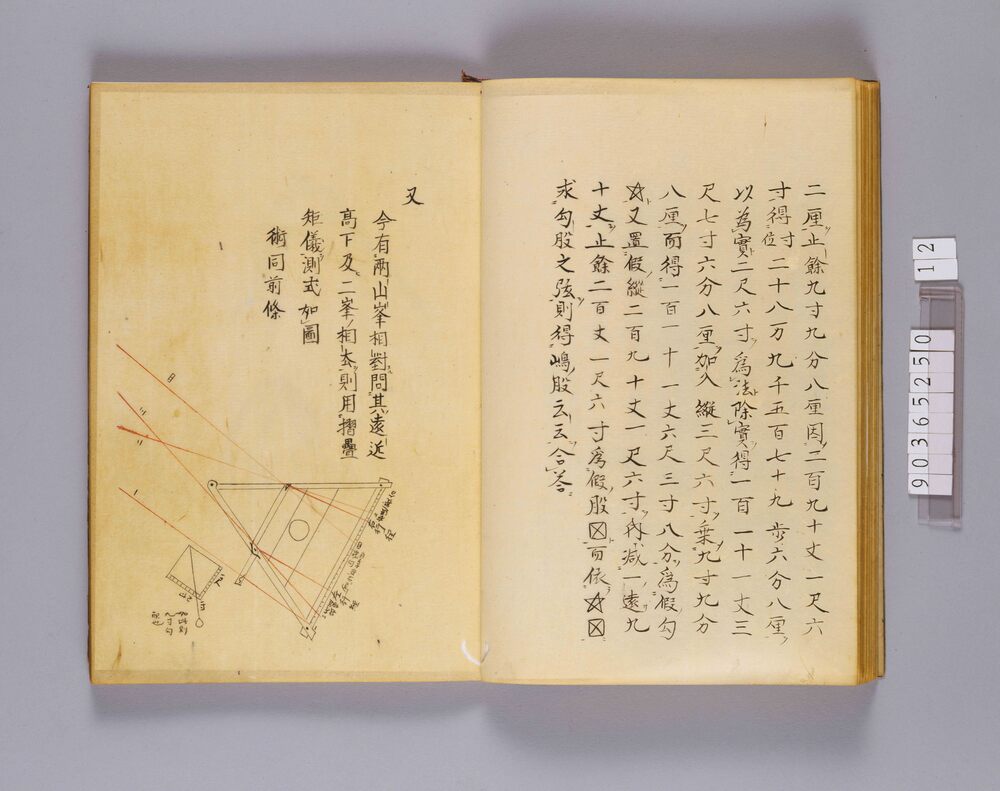 二厘止餘九寸九分八厘因二百九十丈一尺六
寸得位寸二十八万九千五百七十九步六分八厘
以為實二尺六寸為法除實得一百一十一丈三
尺七寸六分八厘加入縱三尺六寸乗九寸九分
八厘而得一百一十一丈六尺三寸八分為假勾
又置假縱二百九十丈一尺六寸内減一遠九
十丈止餘二百丈一尺六寸為假股而依
求勾股之弦則得嶋股云云合答
又
今有兩山峯相對問其遠近
高下及二峯相去則用摺疊
矩儀測式如圖
術同前條
90365250
12